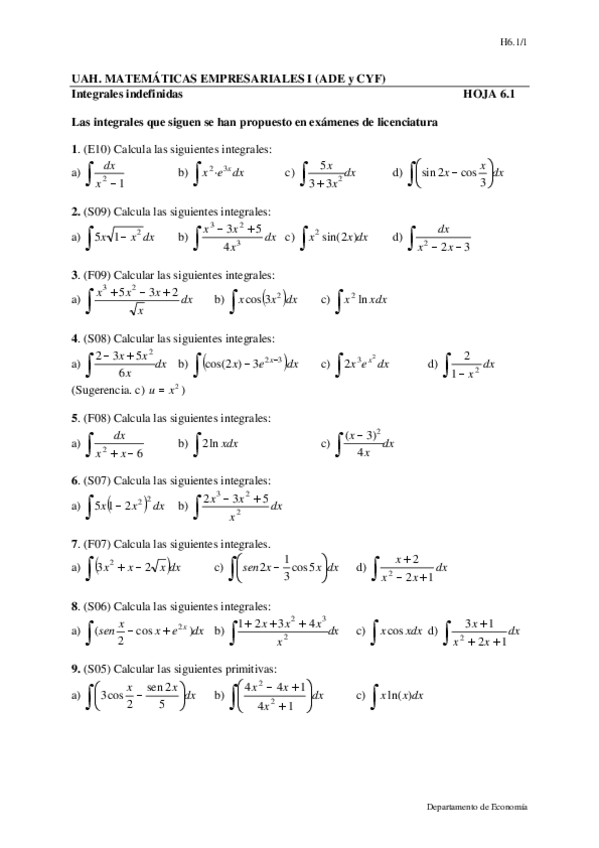 H6.1/1
UAH. MATEMÁTICAS EMPRESARIALES I (ADE y CYF)
Integrales indefinidas HOJA 6.1
Las integrales que siguen se han propuesto en exámenes de licenciatura
1. (E10) Calcula las siguientes integrales:
a) ∫ dx/(x² − 1) b) ∫ x²·e^{3x} dx c) ∫ 5x/(3 + 3x²) dx d) ∫ (sin 2x − cos x/3) dx
2. (S09) Calcula las siguientes integrales:
a) ∫ 5x√(1 − x²) dx b) ∫ (x³ − 3x² + 5)/(4x³) dx c) ∫ x² sin(2x)dx d) ∫ dx/(x² − 2x − 3)
3. (F09) Calcular las siguientes integrales:
a) ∫ (x³ + 5x² − 3x + 2)/√x dx b) ∫ x cos(3x²)dx c) ∫ x² ln xdx
4. (S08) Calcula las siguientes integrales:
a) ∫ (2 − 3x + 5x²)/(6x) dx b) ∫ (cos(2x) − 3e^{2x−3})dx c) ∫ 2x³e^{x²} dx d) ∫ 2/(1 − x²) dx
(Sugerencia. c) u = x² )
5. (F08) Calcula las siguientes integrales:
a) ∫ dx/(x² + x − 6) b) ∫ 2 ln xdx c) ∫ (x − 3)²/(4x) dx
6. (S07) Calcula las siguientes integrales:
a) ∫ 5x(1 − 2x²)² dx b) ∫ (2x³ − 3x² + 5)/x² dx
7. (F07) Calcula las siguientes integrales.
a) ∫ (3x² + x − 2√x)dx c) ∫ (sen2x − 1/3 cos 5x) dx d) ∫ (x + 2)/(x² − 2x + 1) dx
8. (S06) Calcula las siguientes integrales:
a) ∫ (sen x/2 − cos x + e^{2x})dx b) ∫ (1 + 2x + 3x² + 4x³)/x² dx c) ∫ x cos xdx d) ∫ (3x + 1)/(x² + 2x + 1) dx
9. (S05) Calcular las siguientes primitivas:
a) ∫ (3cos x/2 − sen 2x/5) dx b) ∫ ((4x² − 4x + 1)/(4x² + 1)) dx c) ∫ x ln(x)dx
Departamento de Economía